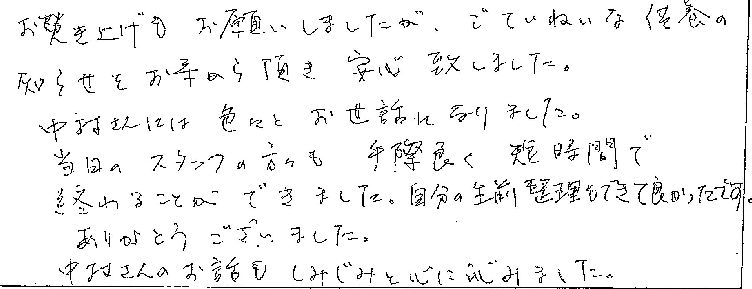 お焚き上げも お願いしましたが、ていねいな供養の
知らせをお寺から頂き 安心致しました。
中村さんには色々とお世話になりました。
当日のスタッフの方々も 手際良く 短時間で
終わることができました。自分の生前整理もできて良かったです。
ありがとうございました。
中村さんのお話も しみじみと心に沁みました。